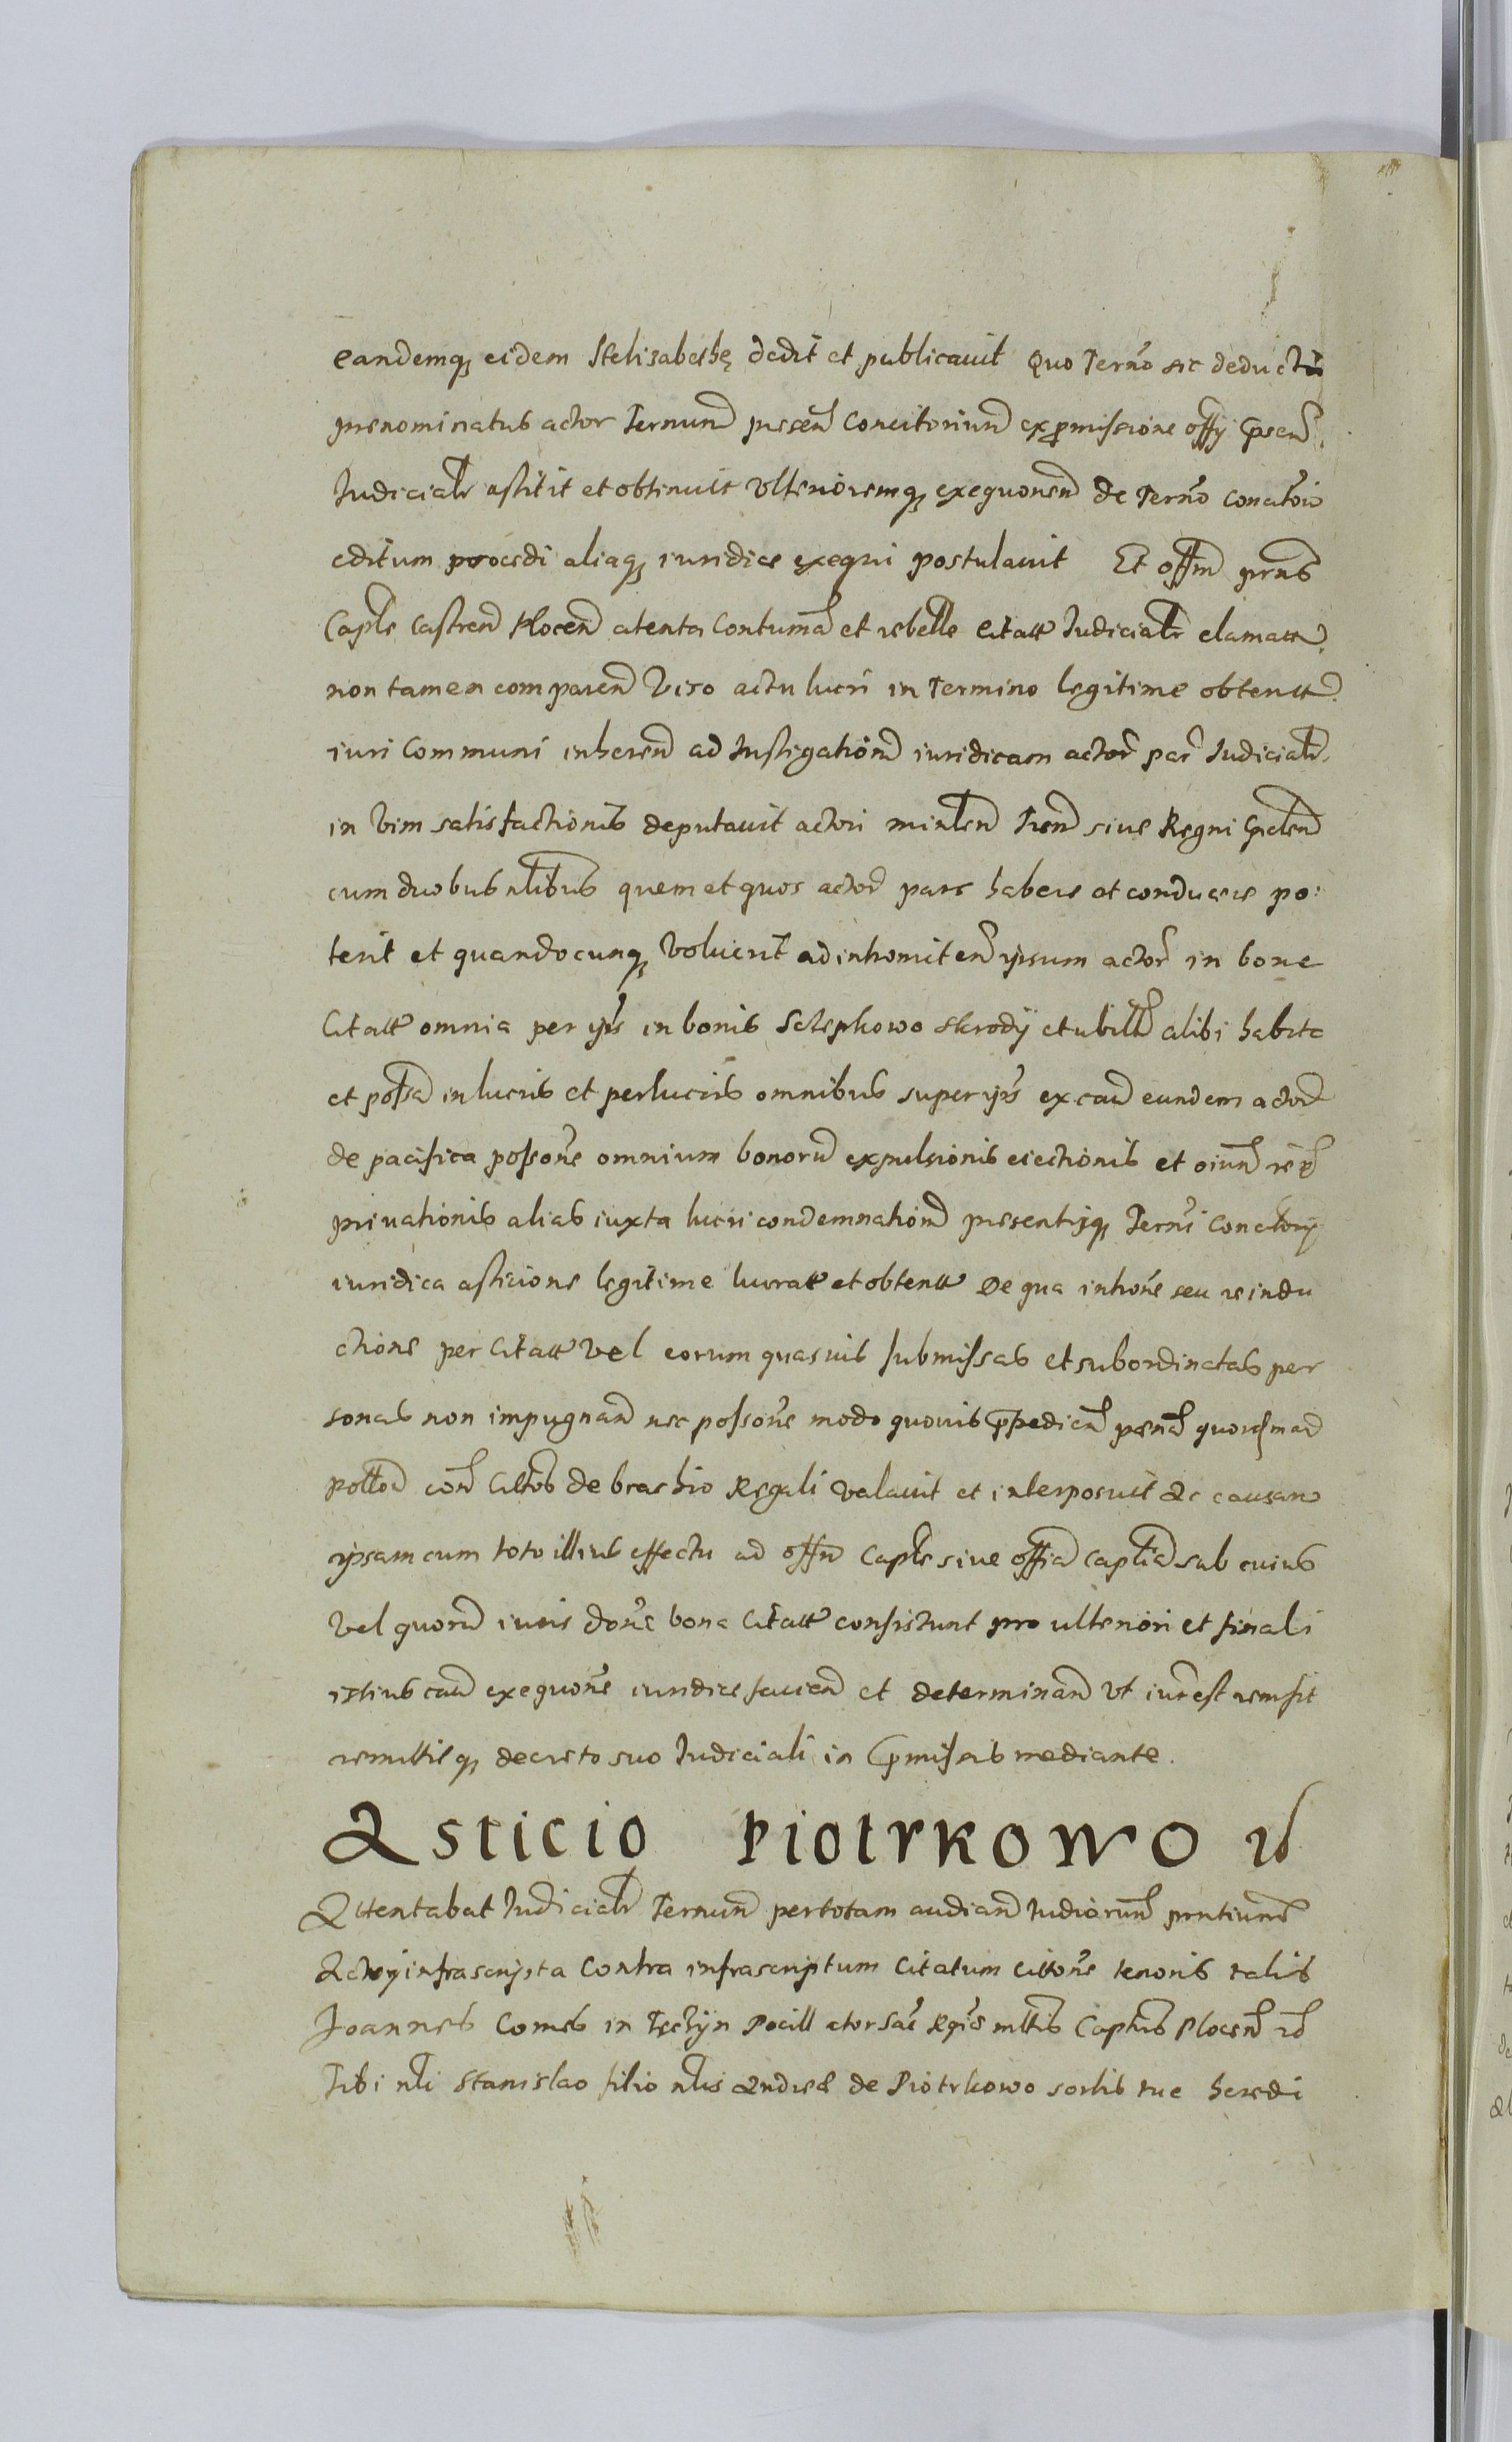 eandemq eidem Helizabethę dedit et publicauit Quo Terno sic deducto
prenominatus actor Ternum presen Concitorium ex pmissione offy psen
Iudicialr astitit et obtinuit Vlterioremq exequonem de Terno conatoio
editum procedi aliaq iuridice exequi postulauit Et offm prns
Caple Castren Plocen atenta Contuma et rebelle Citatt Iudicialr clamatt
non tamen comparen Viso actu lucri in Termino legitime obtentt
iuri Communi inheren ad Instigationm iuridicam actor par Iudicialr
in Vim satisfactionis deputauit actori minlem Tren siue Regni Gnlem
cum duobus nlibus quem et quos actor pars habere et conducere po
terit et quandocunq Voluerit ad intromitten ipsum actor in bona
Citatt omnia per ips in bonis Sclepkowo Skrody et ubilt alibi habita
et possa in lucris et perlucris omnibus super ips ex cau eundem actor
de pacifica possone omnium bonoru expulsionis eiectionis et oium
priuationis alias iuxta lucri condemnationm presentisq Terni Concitory
iuridica asticione legitime lucratt et obtentt De qua introne seu reindu
ctione per Citatt vel eorum quasuis submissas et subordinatas per
sonas non impugnan nec possone modo quouis ppedien penas
con Cittos de brachio Regali valauit et interposuit Ac causam
ipsam cum toto illius effectu ad offm Caple siue offia Captia sub cuius
Vel quoru iuris done bona Citatt consistunt pro ulteriori et finali
istius cau exequone iuridice facien et determinan Vt iur est remisit
remittitq decreto suo Iudiciali in pmissis mediante.
Asticio Piotrkowo
Attentabat Iudicialr Ternum per totam audian Iudiciorum prntium
Actor infrascripta Contra infrascriptum Citatum Cittone tenoris talis
Joannes Comes in Tęczyn Pocillator Sae Rgie mttis Captns Plocen
Tibi nli Stanislao filio nlis Andree de Piotrkowo sortis tue heredi